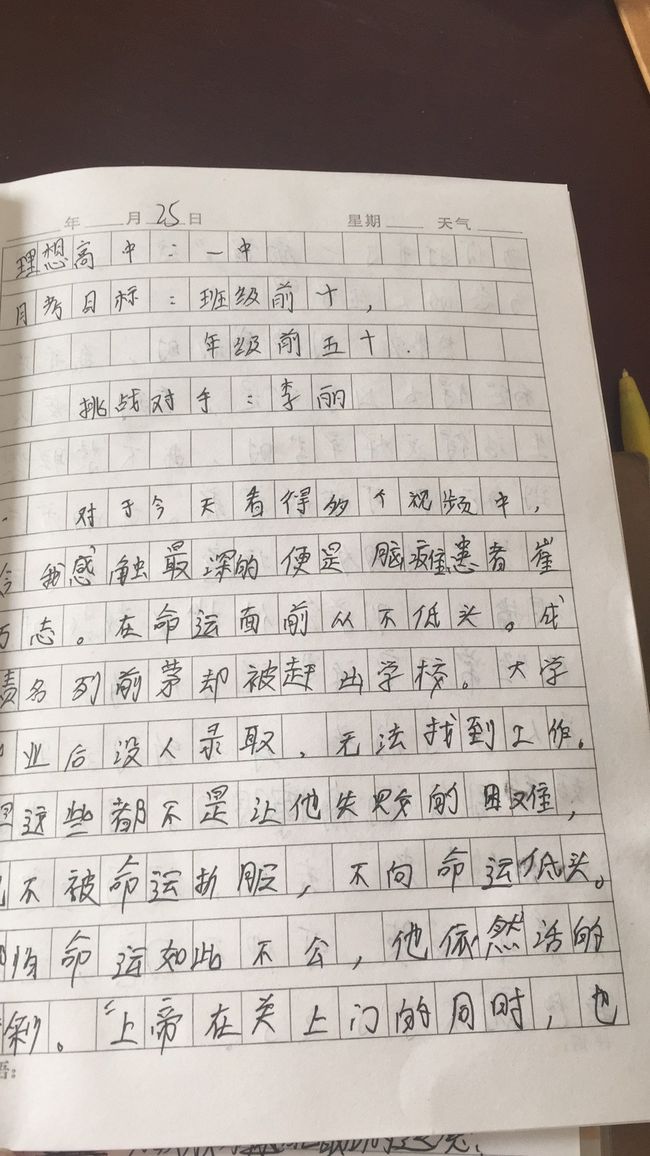 年 月 25 日 星期 天气
理想高中：一中
月考目标：班级前十，
年级前五十．
挑战对手：李丽
对于今天看得的个视频中，
我感触最深的便是脑瘫患者崔
万志。在命运面前从不低头。成
绩名列前茅却被赶出学校。大学
毕业后没人录取，无法找到工作。
这些都不是让他失败的困难，
不被命运折服，不向命运低头。
命运如此不公，他依然活的
彩。“上帝在关上门的同时，也
语：